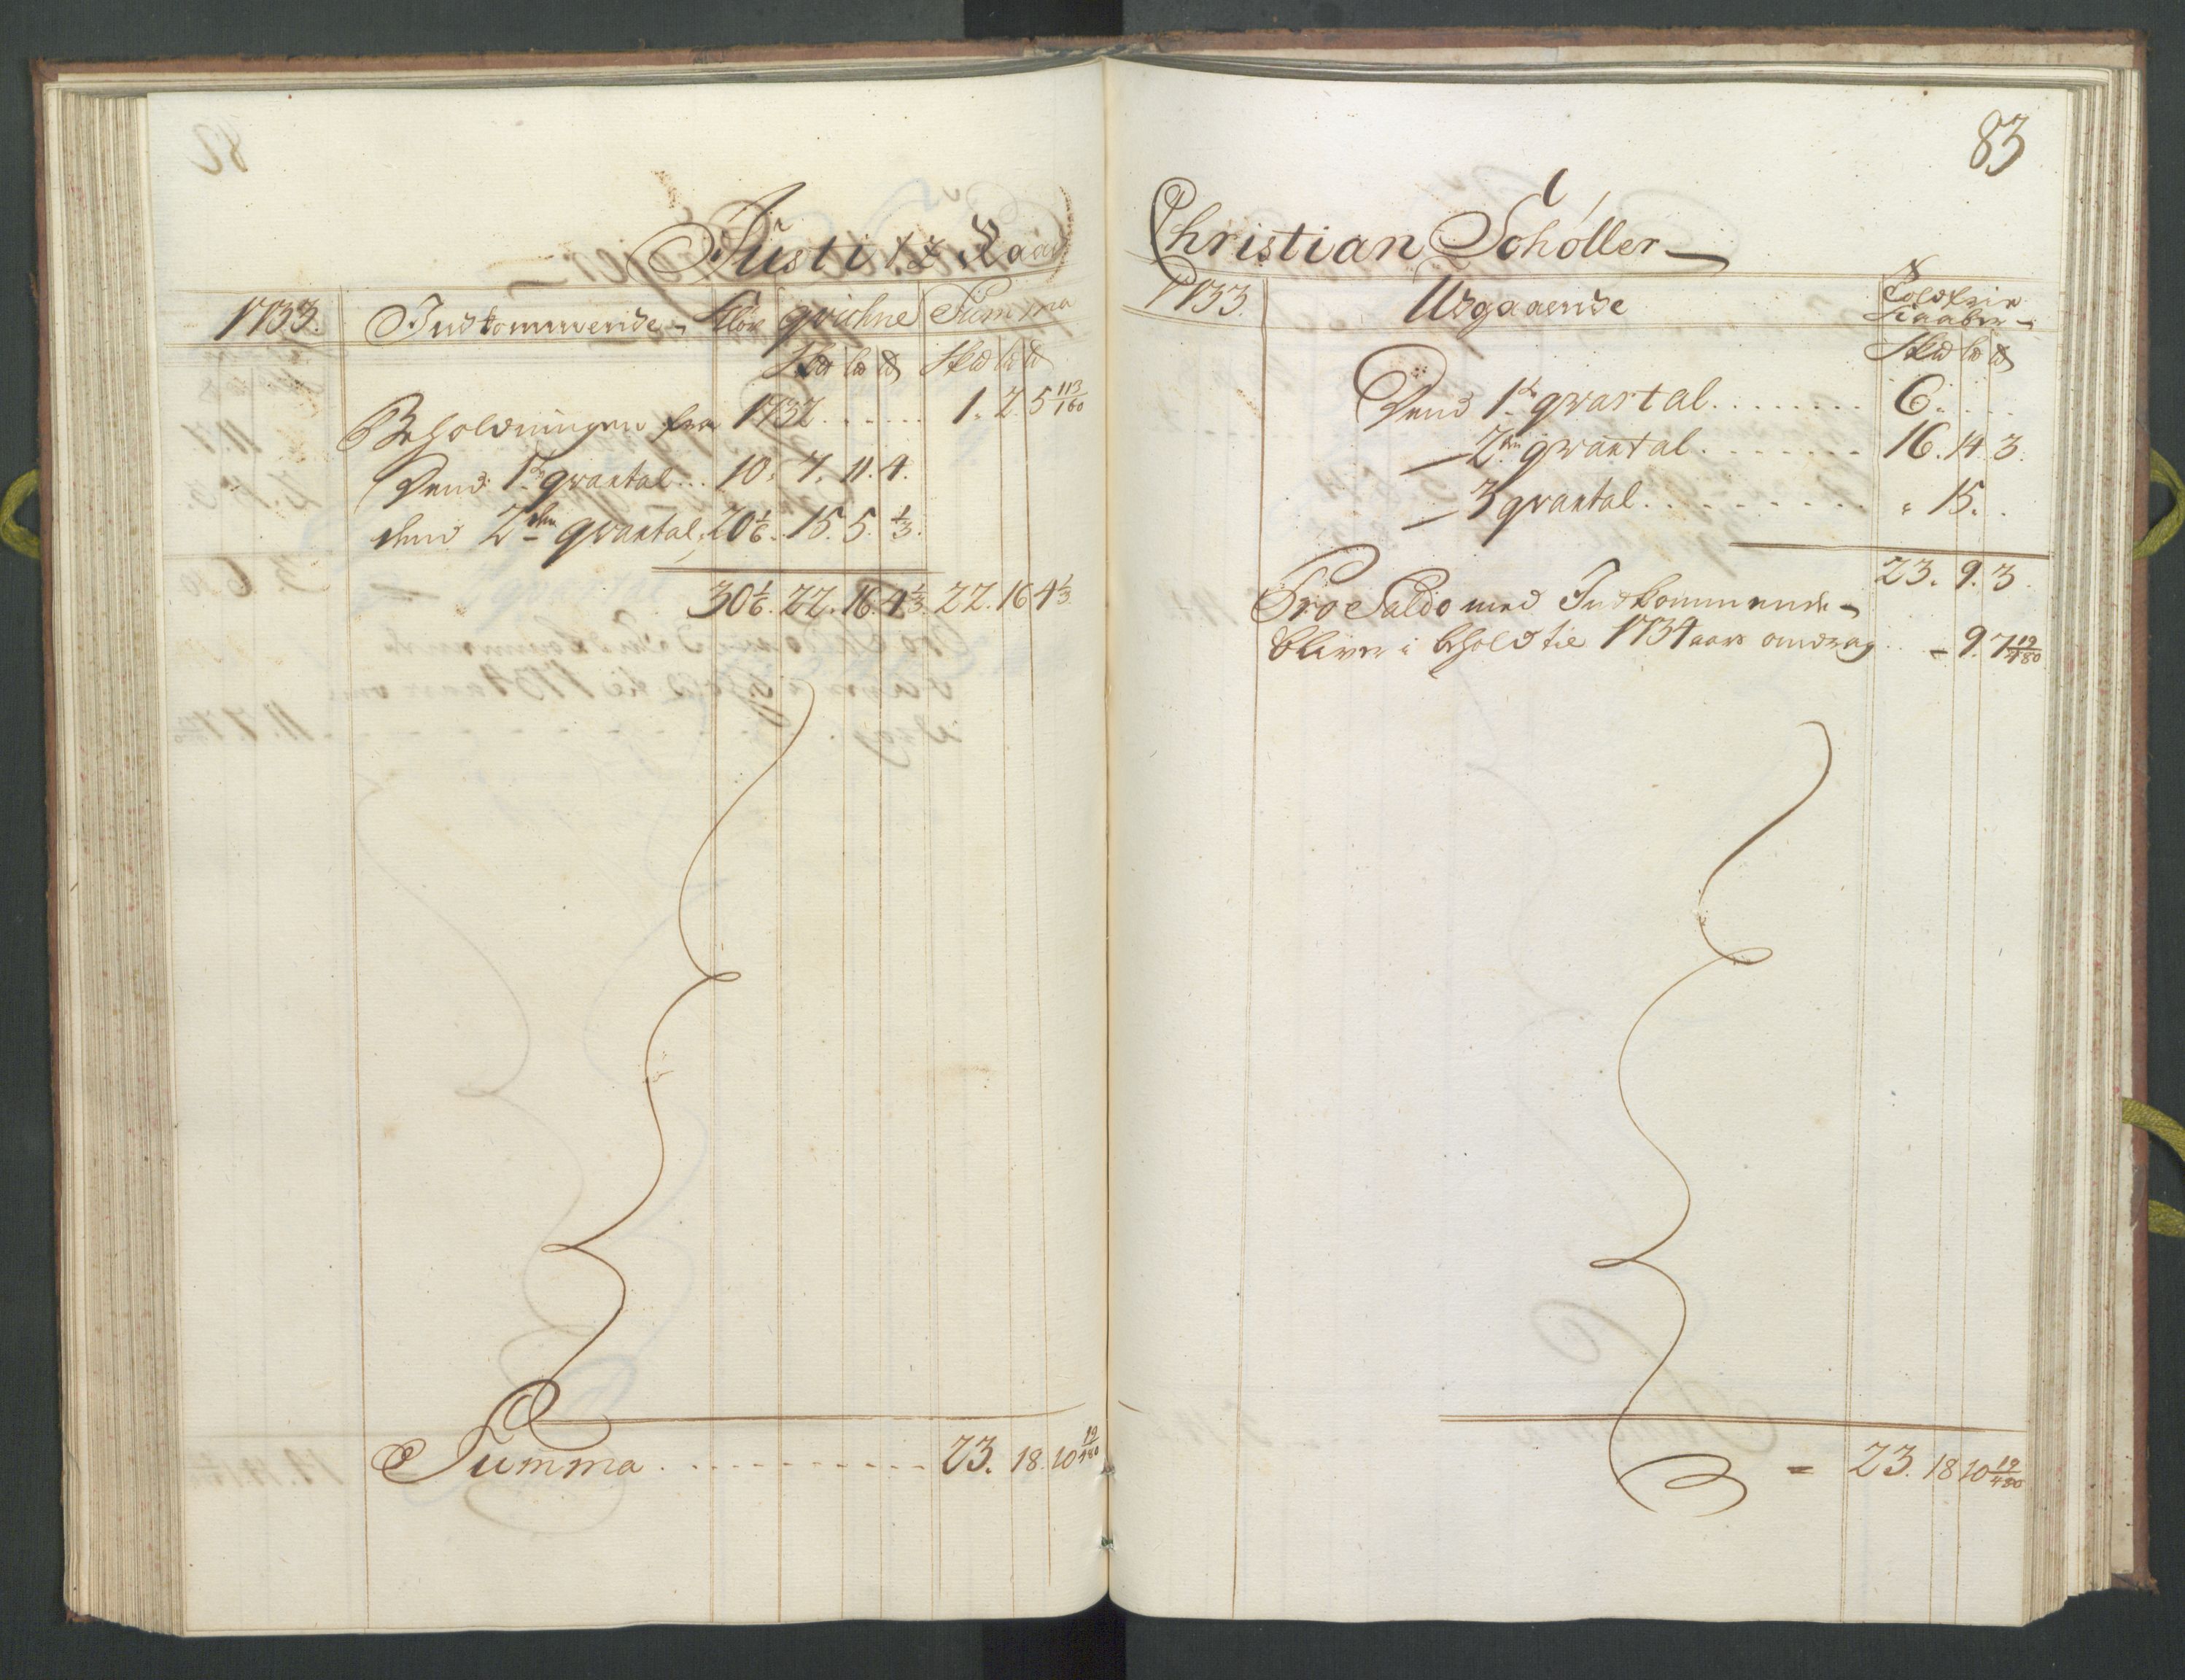 Justitz Raad
1733. Indkommende Kløv qvichne Summa
Sk℔ L℔ ℔ Sk℔ L℔ ℔
Beholdningen fra 1732 . . . . . . 1. 2. 5 113/160
Dend 1.ste qvartal . . 10. 7. 11. 4.
dend 2.den qvartal, 20 1/6. 15. 5. 1/3.
30 1/6. 22. 16. 4 1/3. 22. 16 4 1/3
Summa . . . . . . . . . . . 23. 18. 10 19/480
83
Christian Schöller
1733. Udgaaende Toldfrie Kaaber
Sk℔ L℔ ℔
Dend 1.ste qvartal . . . . . . . . 6. . . .
— 2.den qvartal . . . . . . . 16. 14. 3.
— 3 qvartal . . . . . . . . . . „ 15. .
23. 9. 3.
Pro Saldo med Indkommende
bliver i behold til 1734 aars andrag . . - 9. 7 19/480
= 23. 18 10 19/480